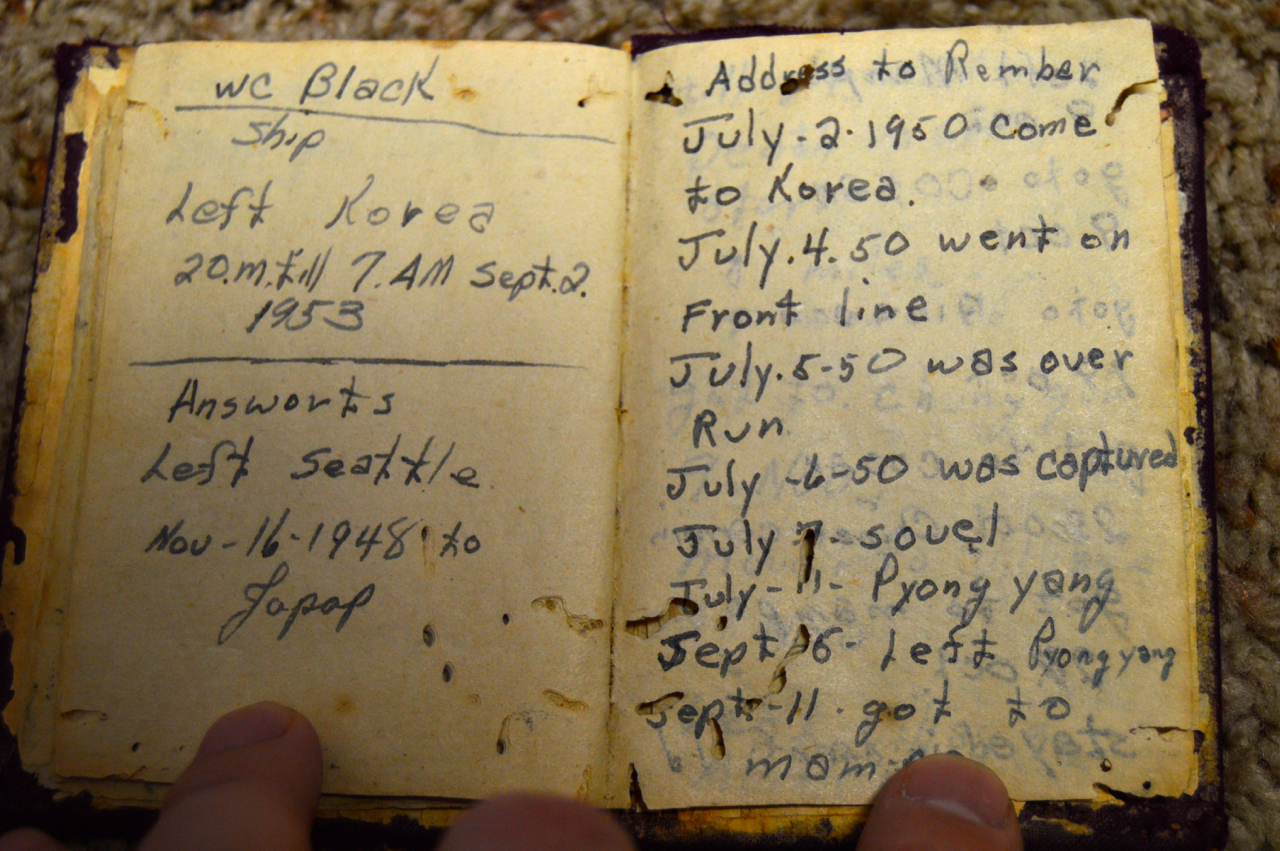 wc Black
Ship
Left Korea
20.m.till 7.AM Sept.2.
1953
Answorts
Left Seattle
Nov-16-1948 to
Japap
Address to Rember
July-2-1950 Come
to Korea.
July.4.50 went on
Front line
July.5-50 was over
Run
July -6-50 was captured
July 7-souel
July-11- Pyong yang
Sept 6- Left Pyong yang
Sept-11-got to
mom-